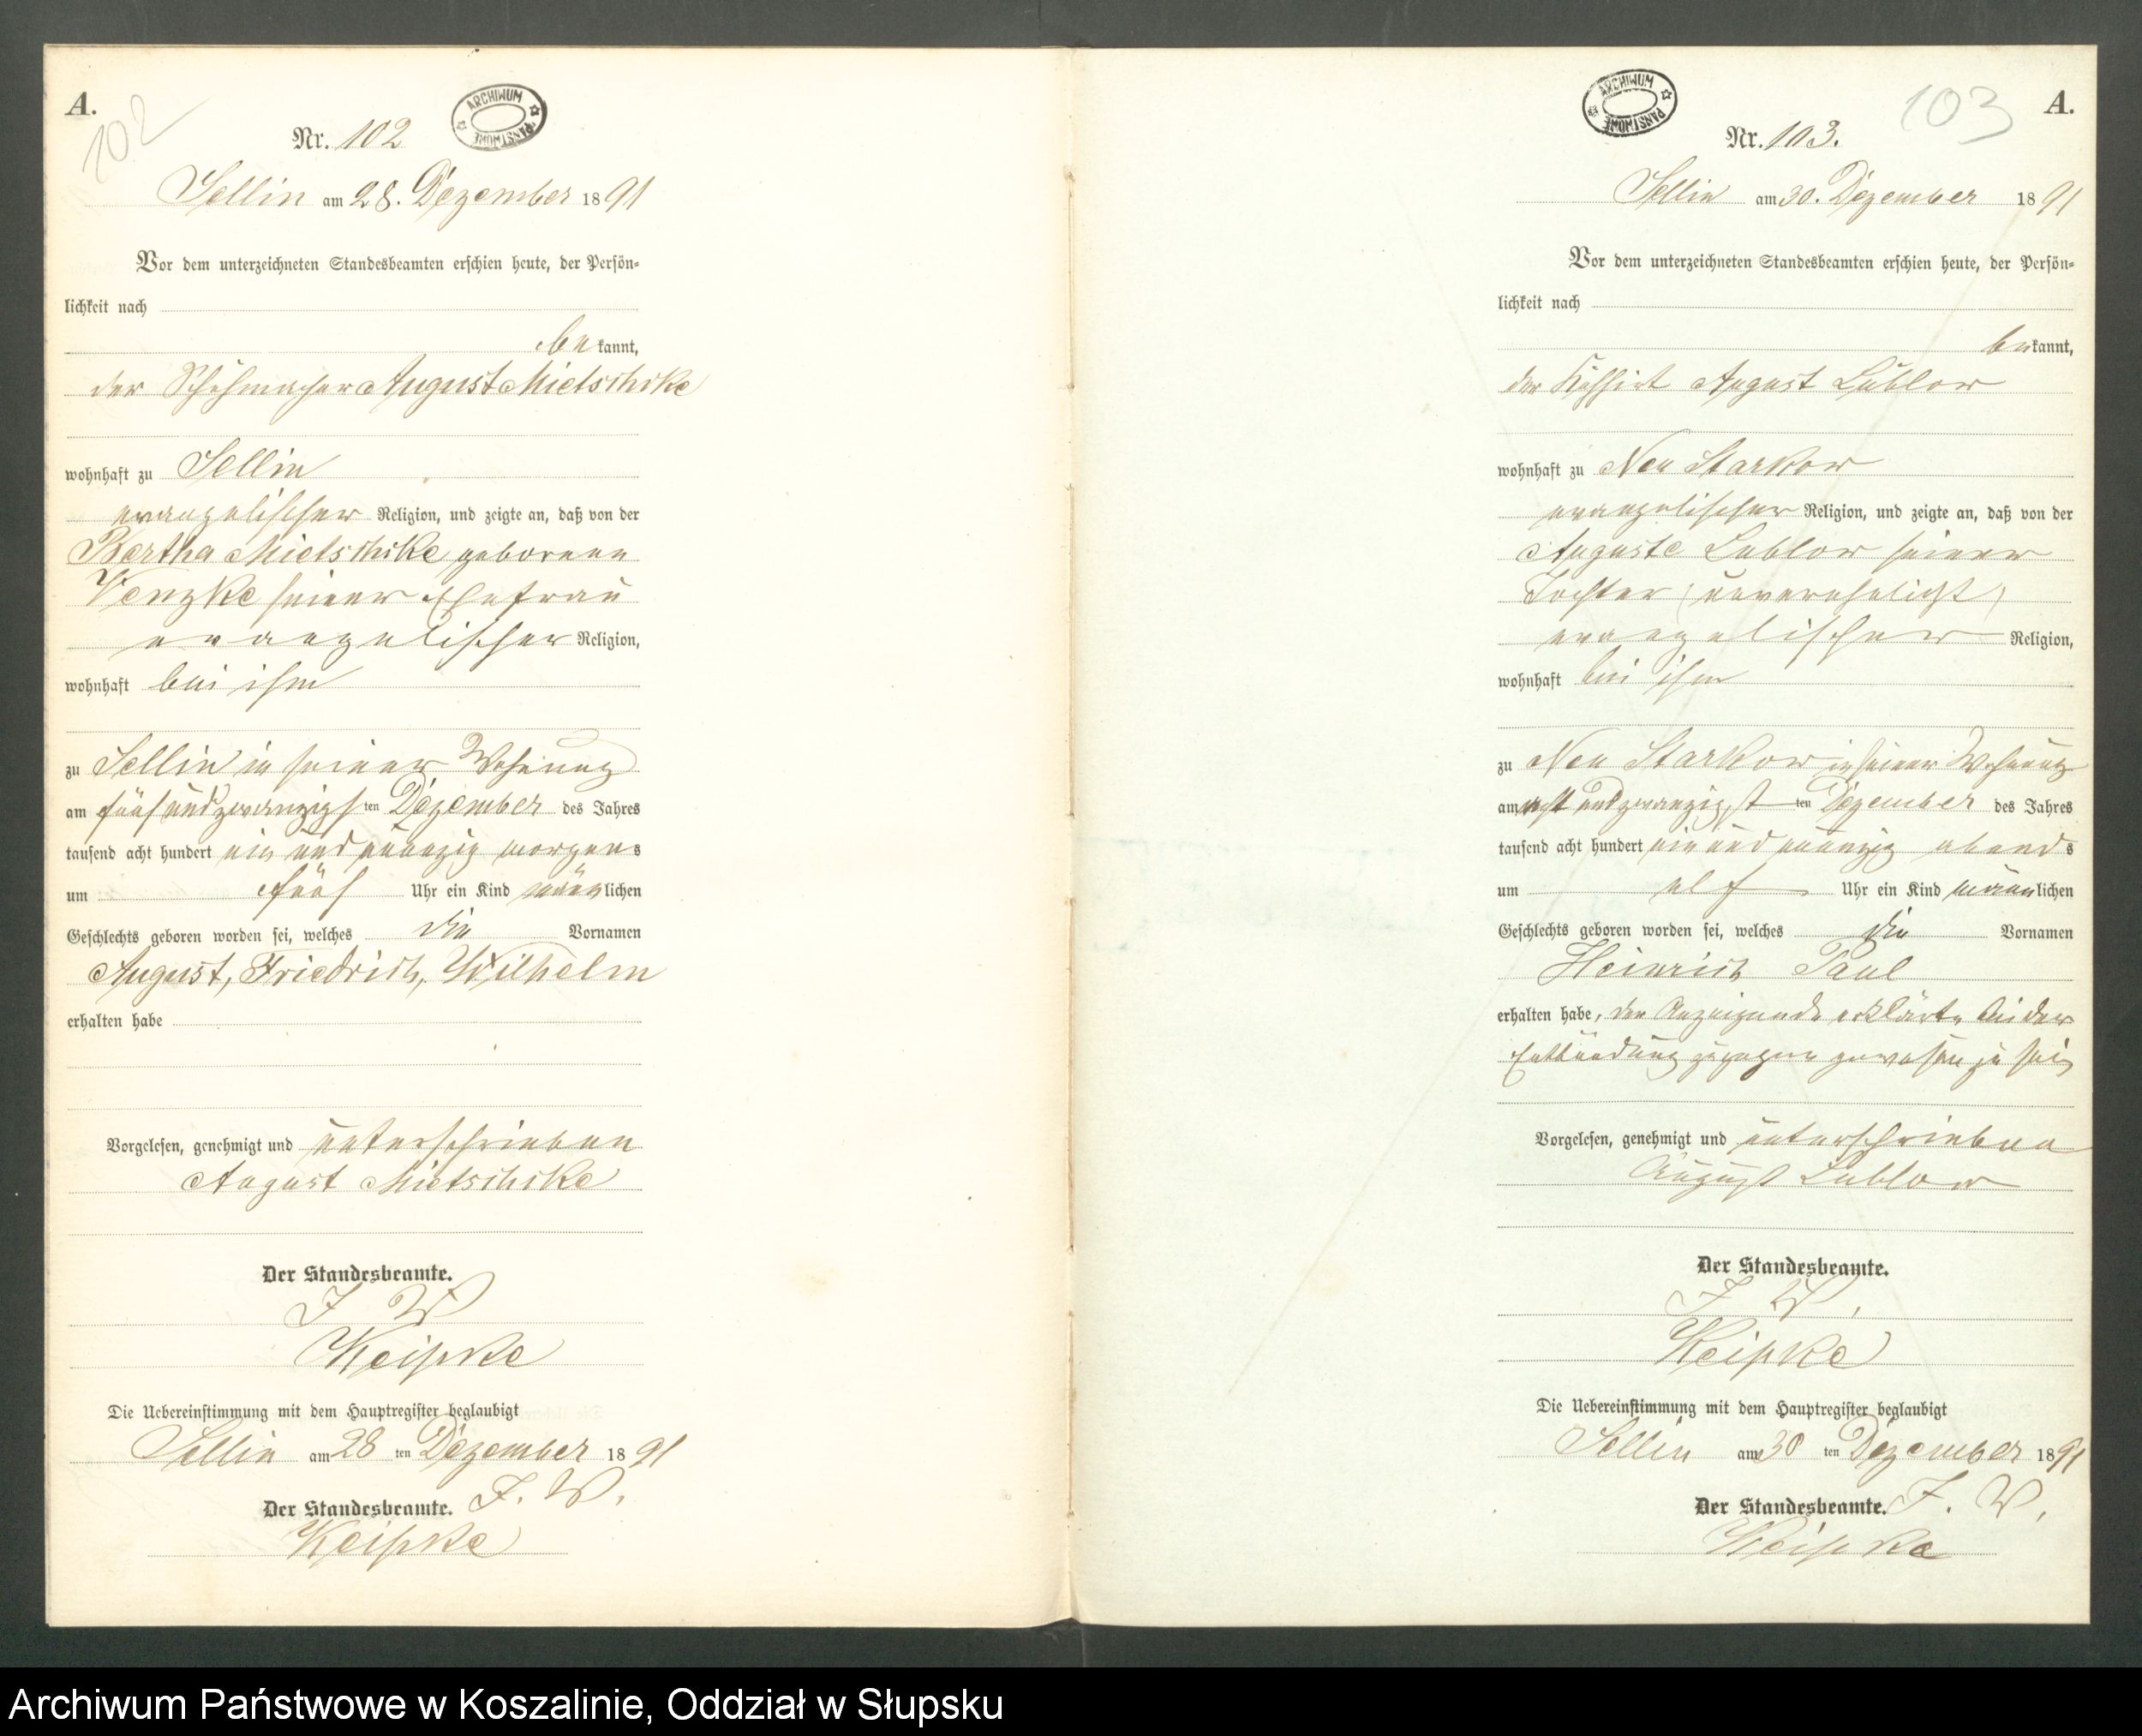 A.
102
Nr. 102
ARCHIWUM PAŃSTWOWE
Sellin am 28. Dezember 1891
Vor dem unterzeichneten Standesbeamten erschien heute, der Persön-
lichkeit nach
bekannt,
der Schuhmacher August Mietschke
wohnhaft zu Sellin
evangelischer Religion, und zeigte an, daß von der
Bertha Mietschke geborenen
Venzke seiner Ehefrau
evangelischer Religion,
wohnhaft bei ihm
zu Sellin in seiner Wohnung
am fünf und zwanzigsten Dezember des Jahres
tausend acht hundert ein und neunzig morgens
um fünf Uhr ein Kind männlichen
Geschlechts geboren worden sei, welches die Vornamen
August, Friedrich, Wilhelm
erhalten habe
Vorgelesen, genehmigt und unterschrieben
August Mietschke
Der Standesbeamte.
I W
Keipke
Die Uebereinstimmung mit dem Hauptregister beglaubigt
Sellin am 28 ten Dezember 1891
Der Standesbeamte. I. W.
Keipke
ARCHIWUM PAŃSTWOWE
103
A.
Nr. 103.
Sellin am 30. Dezember 1891
Vor dem unterzeichneten Standesbeamten erschien heute, der Persön-
lichkeit nach
bekannt,
der Kuhhirt August Lublow
wohnhaft zu Neu Starkow
evangelischer Religion, und zeigte an, daß von der
Auguste Lublow seiner
Tochter (unverehelicht)
evangelischer Religion,
wohnhaft bei ihm
zu Neu Starkow in seiner Wohnung
am acht und zwanzigsten Dezember des Jahres
tausend acht hundert ein und neunzig abends
um elf Uhr ein Kind männlichen
Geschlechts geboren worden sei, welches die Vornamen
Heinrich Paul
erhalten habe, der Anzeigende erklärte bei der
Entbindung zugegen gewesen zu sein
Vorgelesen, genehmigt und unterschrieben
August Lublow
Der Standesbeamte.
I. W.
Keipke
Die Uebereinstimmung mit dem Hauptregister beglaubigt
Sellin am 30 ten Dezember 1891
Der Standesbeamte. I. W.
Keipke
Archiwum Państwowe w Koszalinie, Oddział w Słupsku